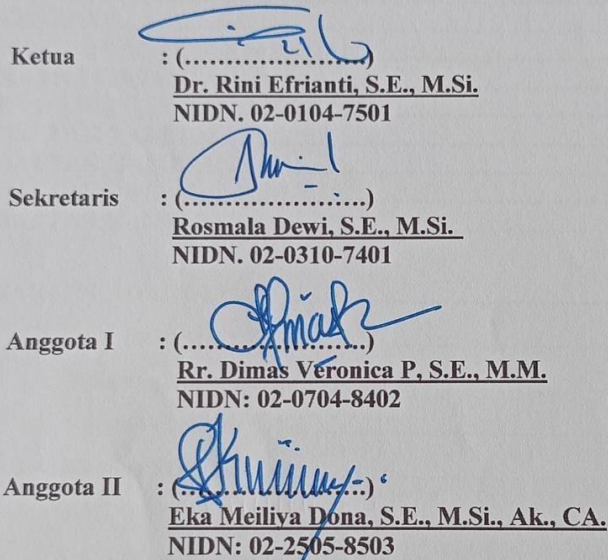 Ketua : (........................)
Dr. Rini Efrianti, S.E., M.Si.
NIDN. 02-0104-7501
Sekretaris : (........................)
Rosmala Dewi, S.E., M.Si.
NIDN. 02-0310-7401
Anggota I : (........................)
Rr. Dimas Veronica P, S.E., M.M.
NIDN: 02-0704-8402
Anggota II : (........................)
Eka Meiliya Dona, S.E., M.Si., Ak., CA.
NIDN: 02-2505-8503